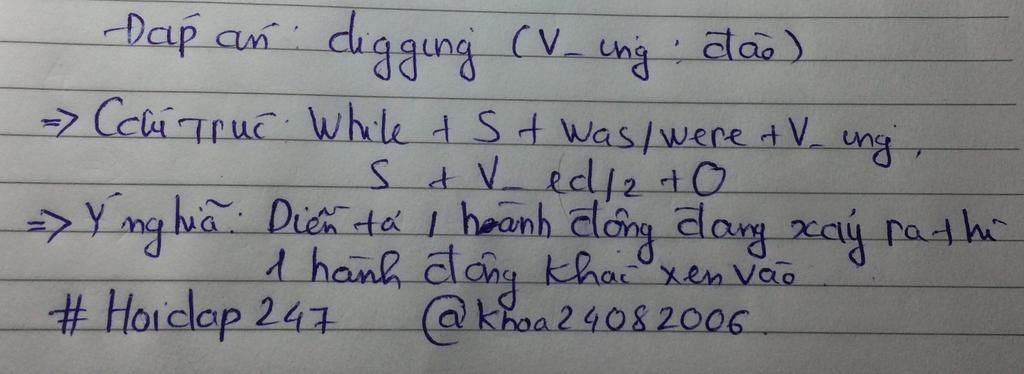 -Đáp án: digging (V_ ing: đào)
=> Cấu trúc: While + S + was/were + V_ ing,
S + V_ ed/2 + O
=> Ý nghĩa: Diễn tả 1 hành động đang xảy ra thì
1 hành động khác xen vào.
# Hoidap 247 @khoa24082006.